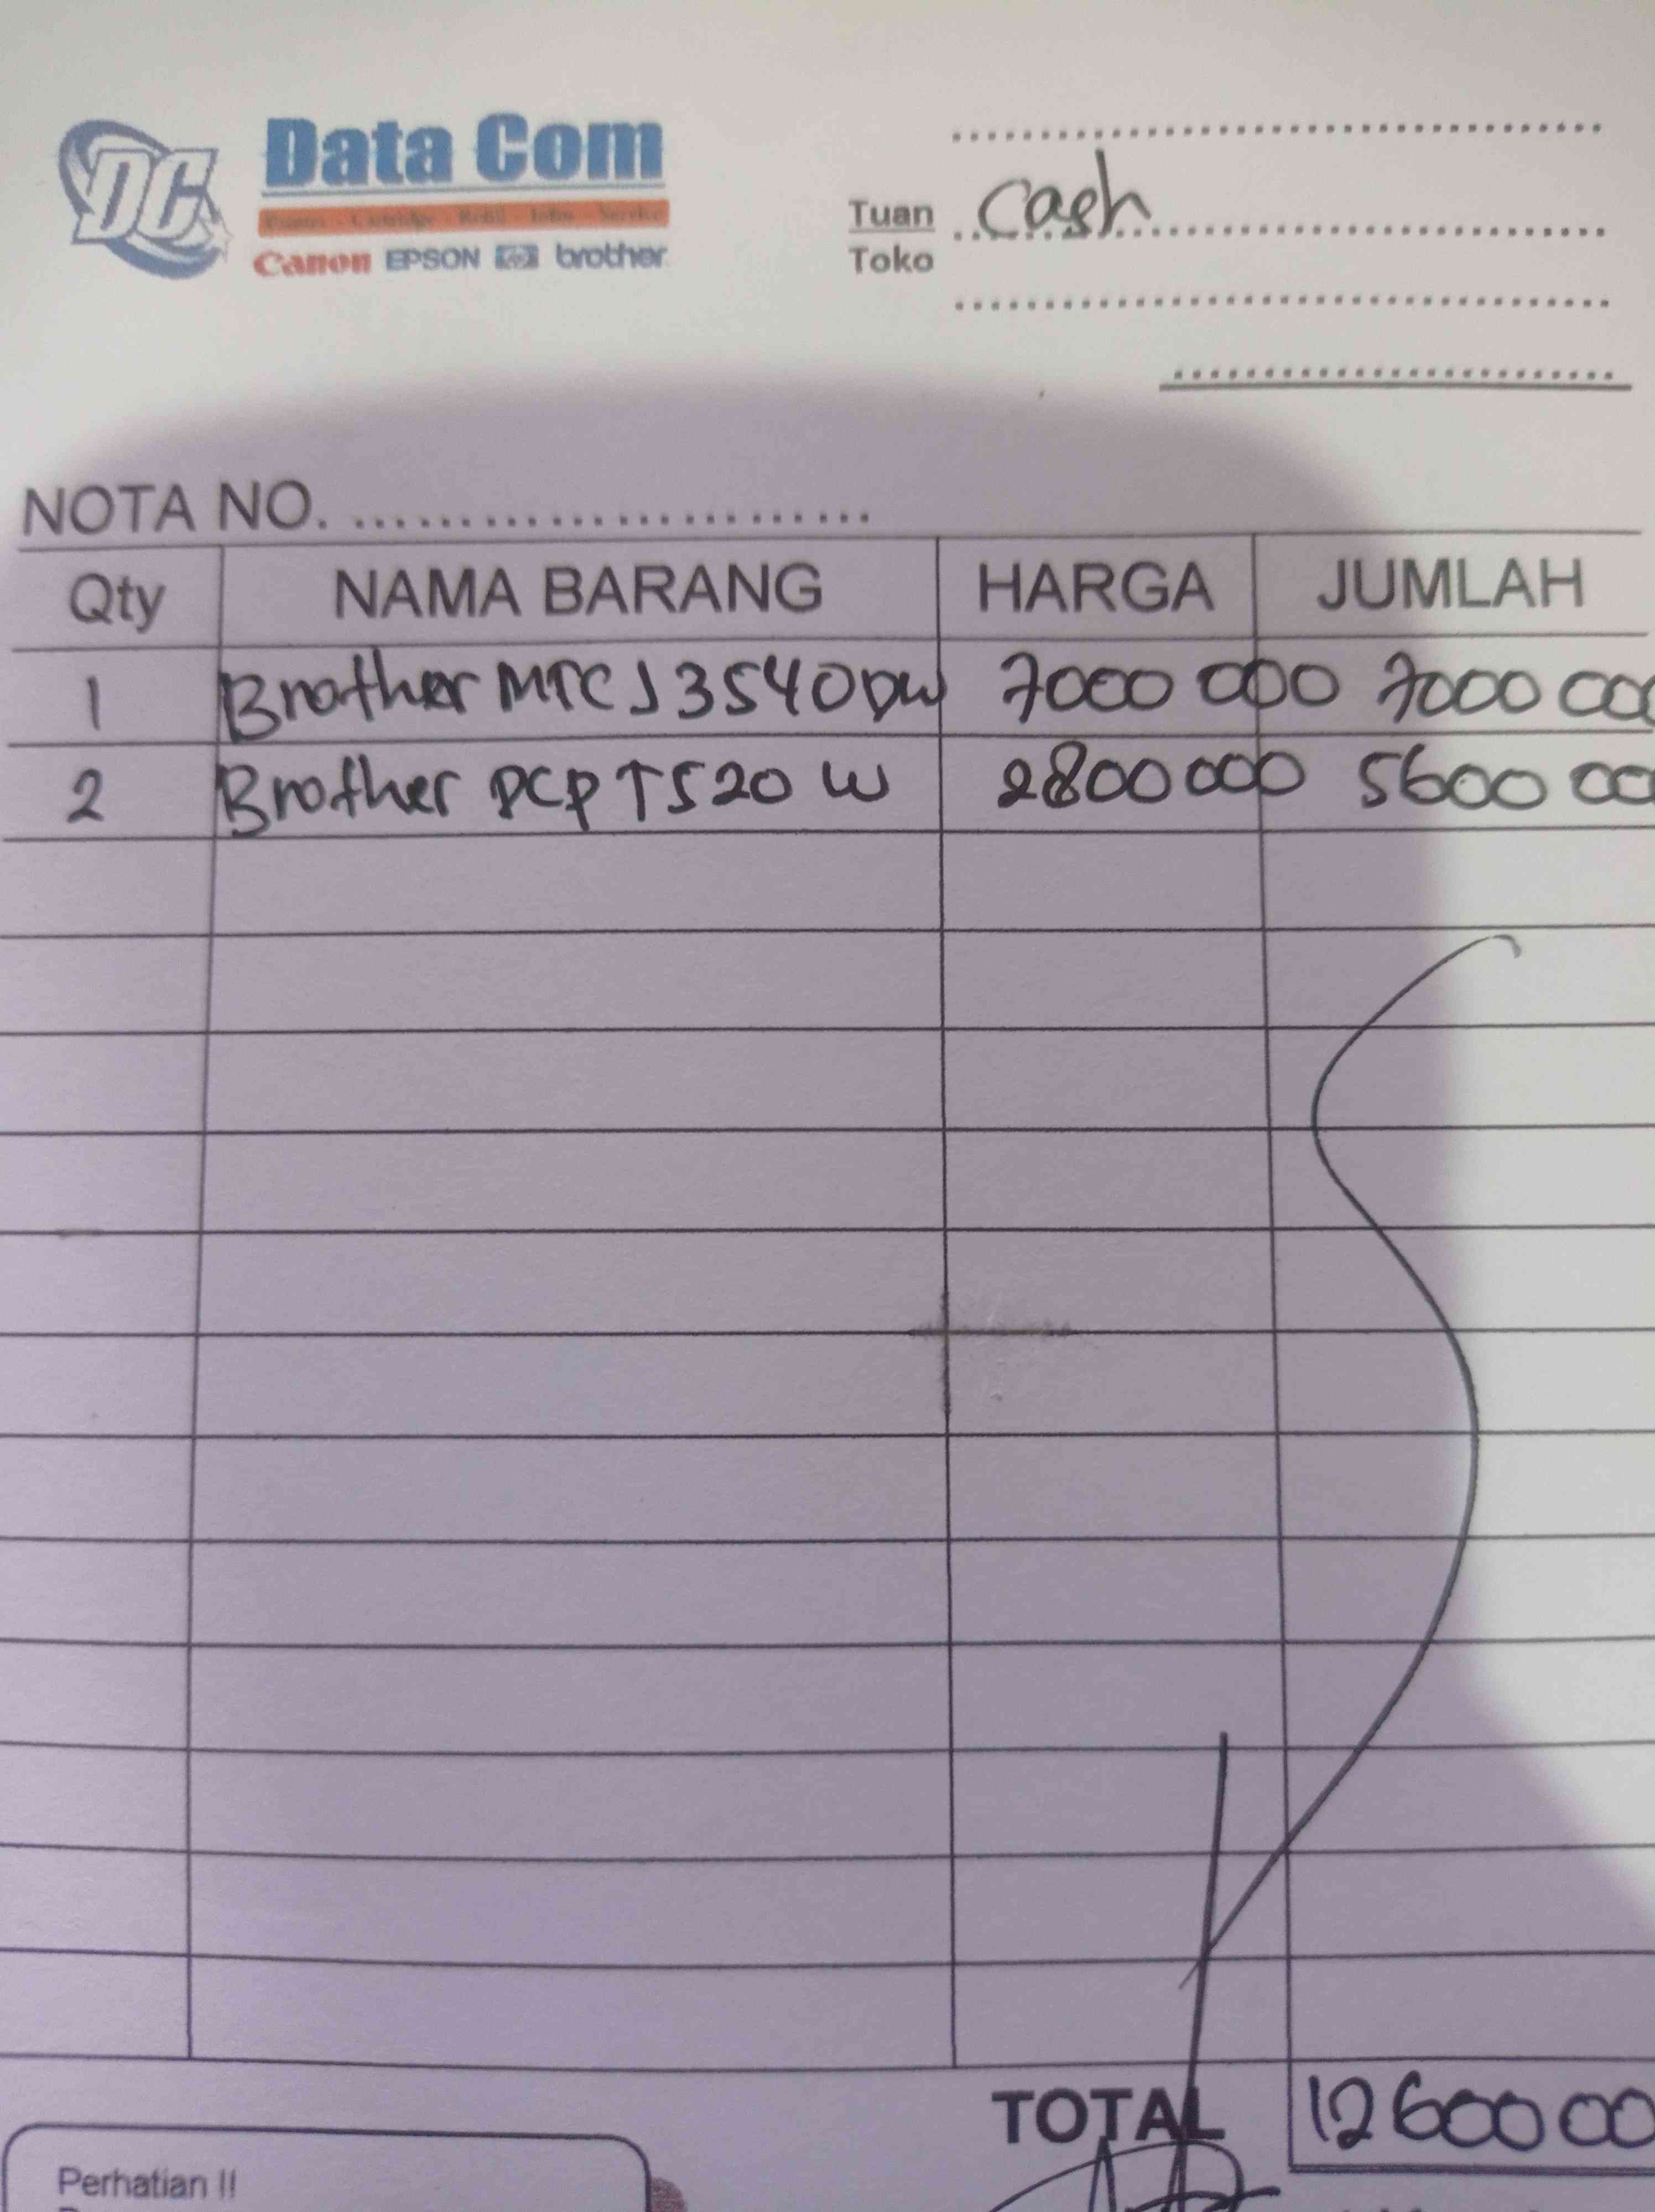 DC
Data Com
Printer - Cartridge - Refill - Infus - Service
Canon EPSON hp brother
Tuan Cash
Toko
NOTA NO.
Qty NAMA BARANG HARGA JUMLAH
1 Brother MFC J3540DW 7000 000 7000 000
2 Brother DCP T520 W 2800 000 5600 00
TOTAL 12600 00
Perhatian !!